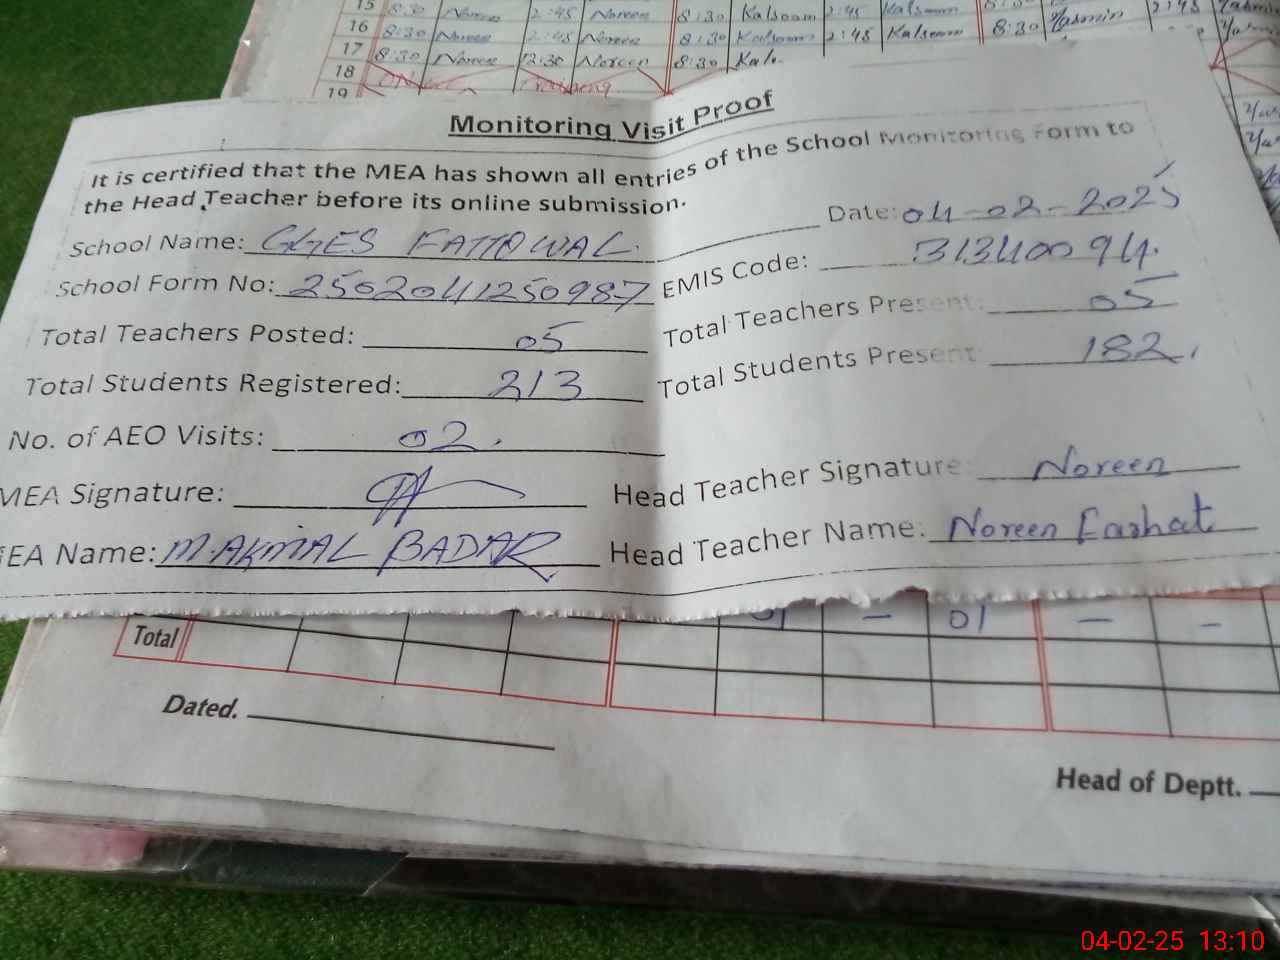 15 8:30 Noreen 2:45 Noreen 8:30 Kalsoom 2:45 Kalsoom
16 8:30 Noreen 2:45 Noreen 8:30 Kalsoom 2:45 Kalsoom 8:30 Yasmin 2:45
17 8:30 Noreen 12:30 Noreen 8:30
18
19
Monitoring Visit Proof
It is certified that the MEA has shown all entries of the School Monitoring Form to
the Head Teacher before its online submission.
Date: 04-02-2025
School Name: GGES FATTOWAL
EMIS Code: 31340094
School Form No: 2502041250987
Total Teachers Posted: 05
Total Teachers Present: 05
Total Students Registered: 213
Total Students Present: 182
No. of AEO Visits: 02
MEA Signature:
Head Teacher Signature: Noreen
EA Name: M. AKMAL BADAR
Head Teacher Name: Noreen Farhat
01 — 01 — —
Total
Dated.
Head of Deptt.
04-02-25 13:10